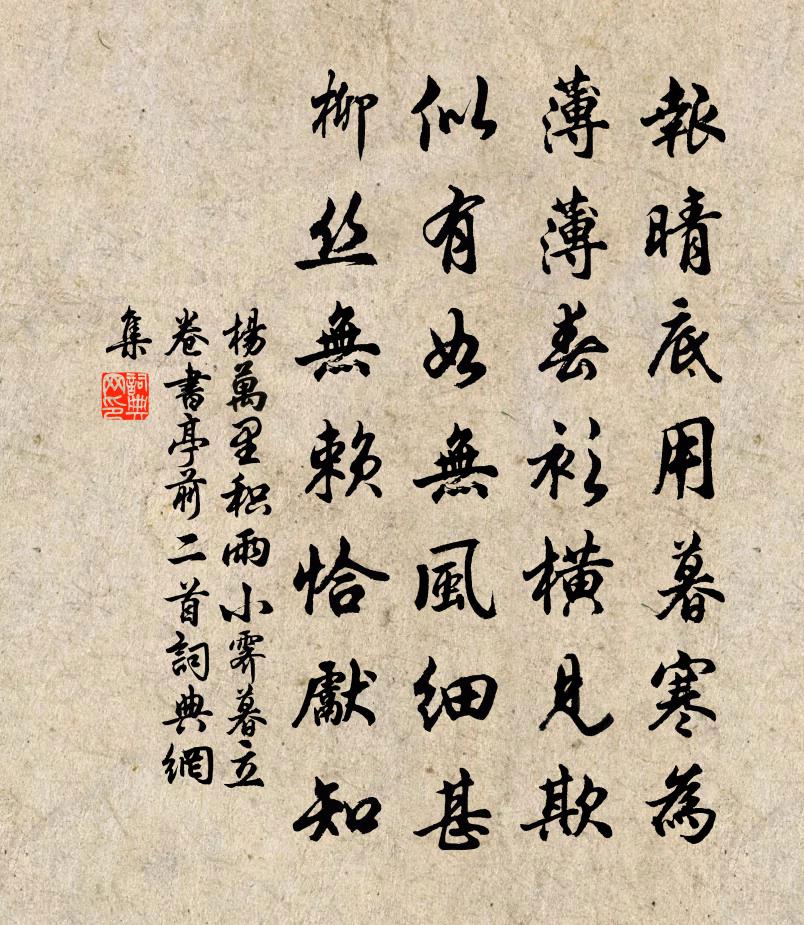 報晴底用暮寒為
薄薄春衫橫見欺
似有如無無風細甚
柳絲無賴恰獻知
楊萬里積雨小霽暮立
卷書亭前二首詞典網
集
詞典
網印